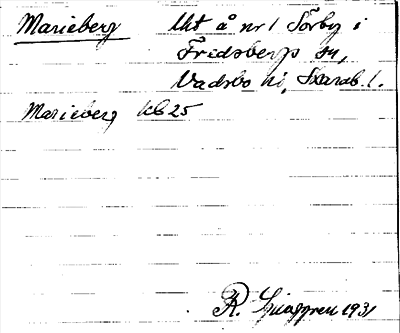 Marieberg Utt å nr 1 Sörby i
Fredsbergs sn,
Vadsbo hd, Skarab. l.
Marieberg KB 25
R. Ljunggren 1931